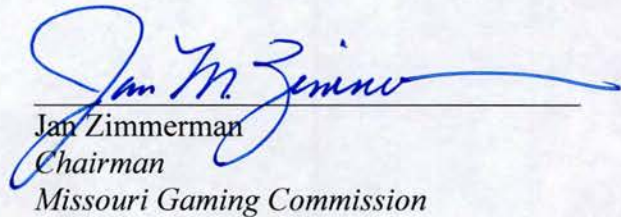 Jan M. Zimme
Jan Zimmerman
Chairman
Missouri Gaming Commission